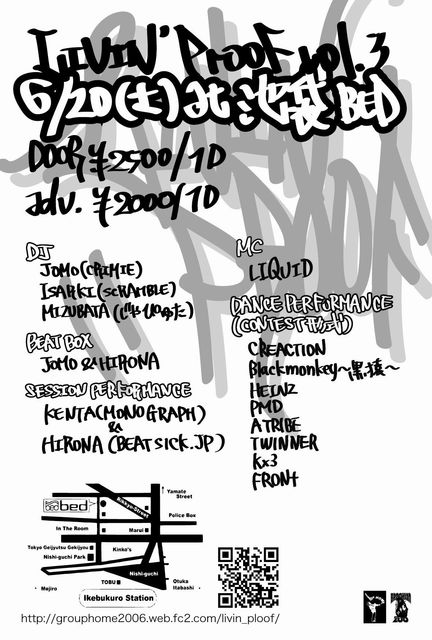 LIVIN' PROOF vol.3
6/20(土) at 池袋 BED
DOOR ¥2500/1D
adv. ¥2000/1D
DJ
JOMO(CRIMIE)
ISAKI(SCRAMBLE)
MIZUBATA
BEAT BOX
JOMO & HIRONA
SESSION PERFORMANCE
KENTA(MONOGRAPH)
&
HIRONA(BEATSICK.JP)
MC
LIQUID
DANCE PERFORMANCE
(CONTEST形式)
CREACTION
Blackmonkey～黒猿～
HEINZ
PMD
ATRIBE
TWINNER
Kx3
FRONt
bed
Yamate Street
Police Box
In The Room
Marui
Tokyo Geijyutsu Gekijyou
Kinko's
Nishi-guchi Park
Nishi-guchi
TOBU
Otuka
Itabashi
Mejiro
Ikebukuro Station
http://grouphome2006.web.fc2.com/livin_ploof/